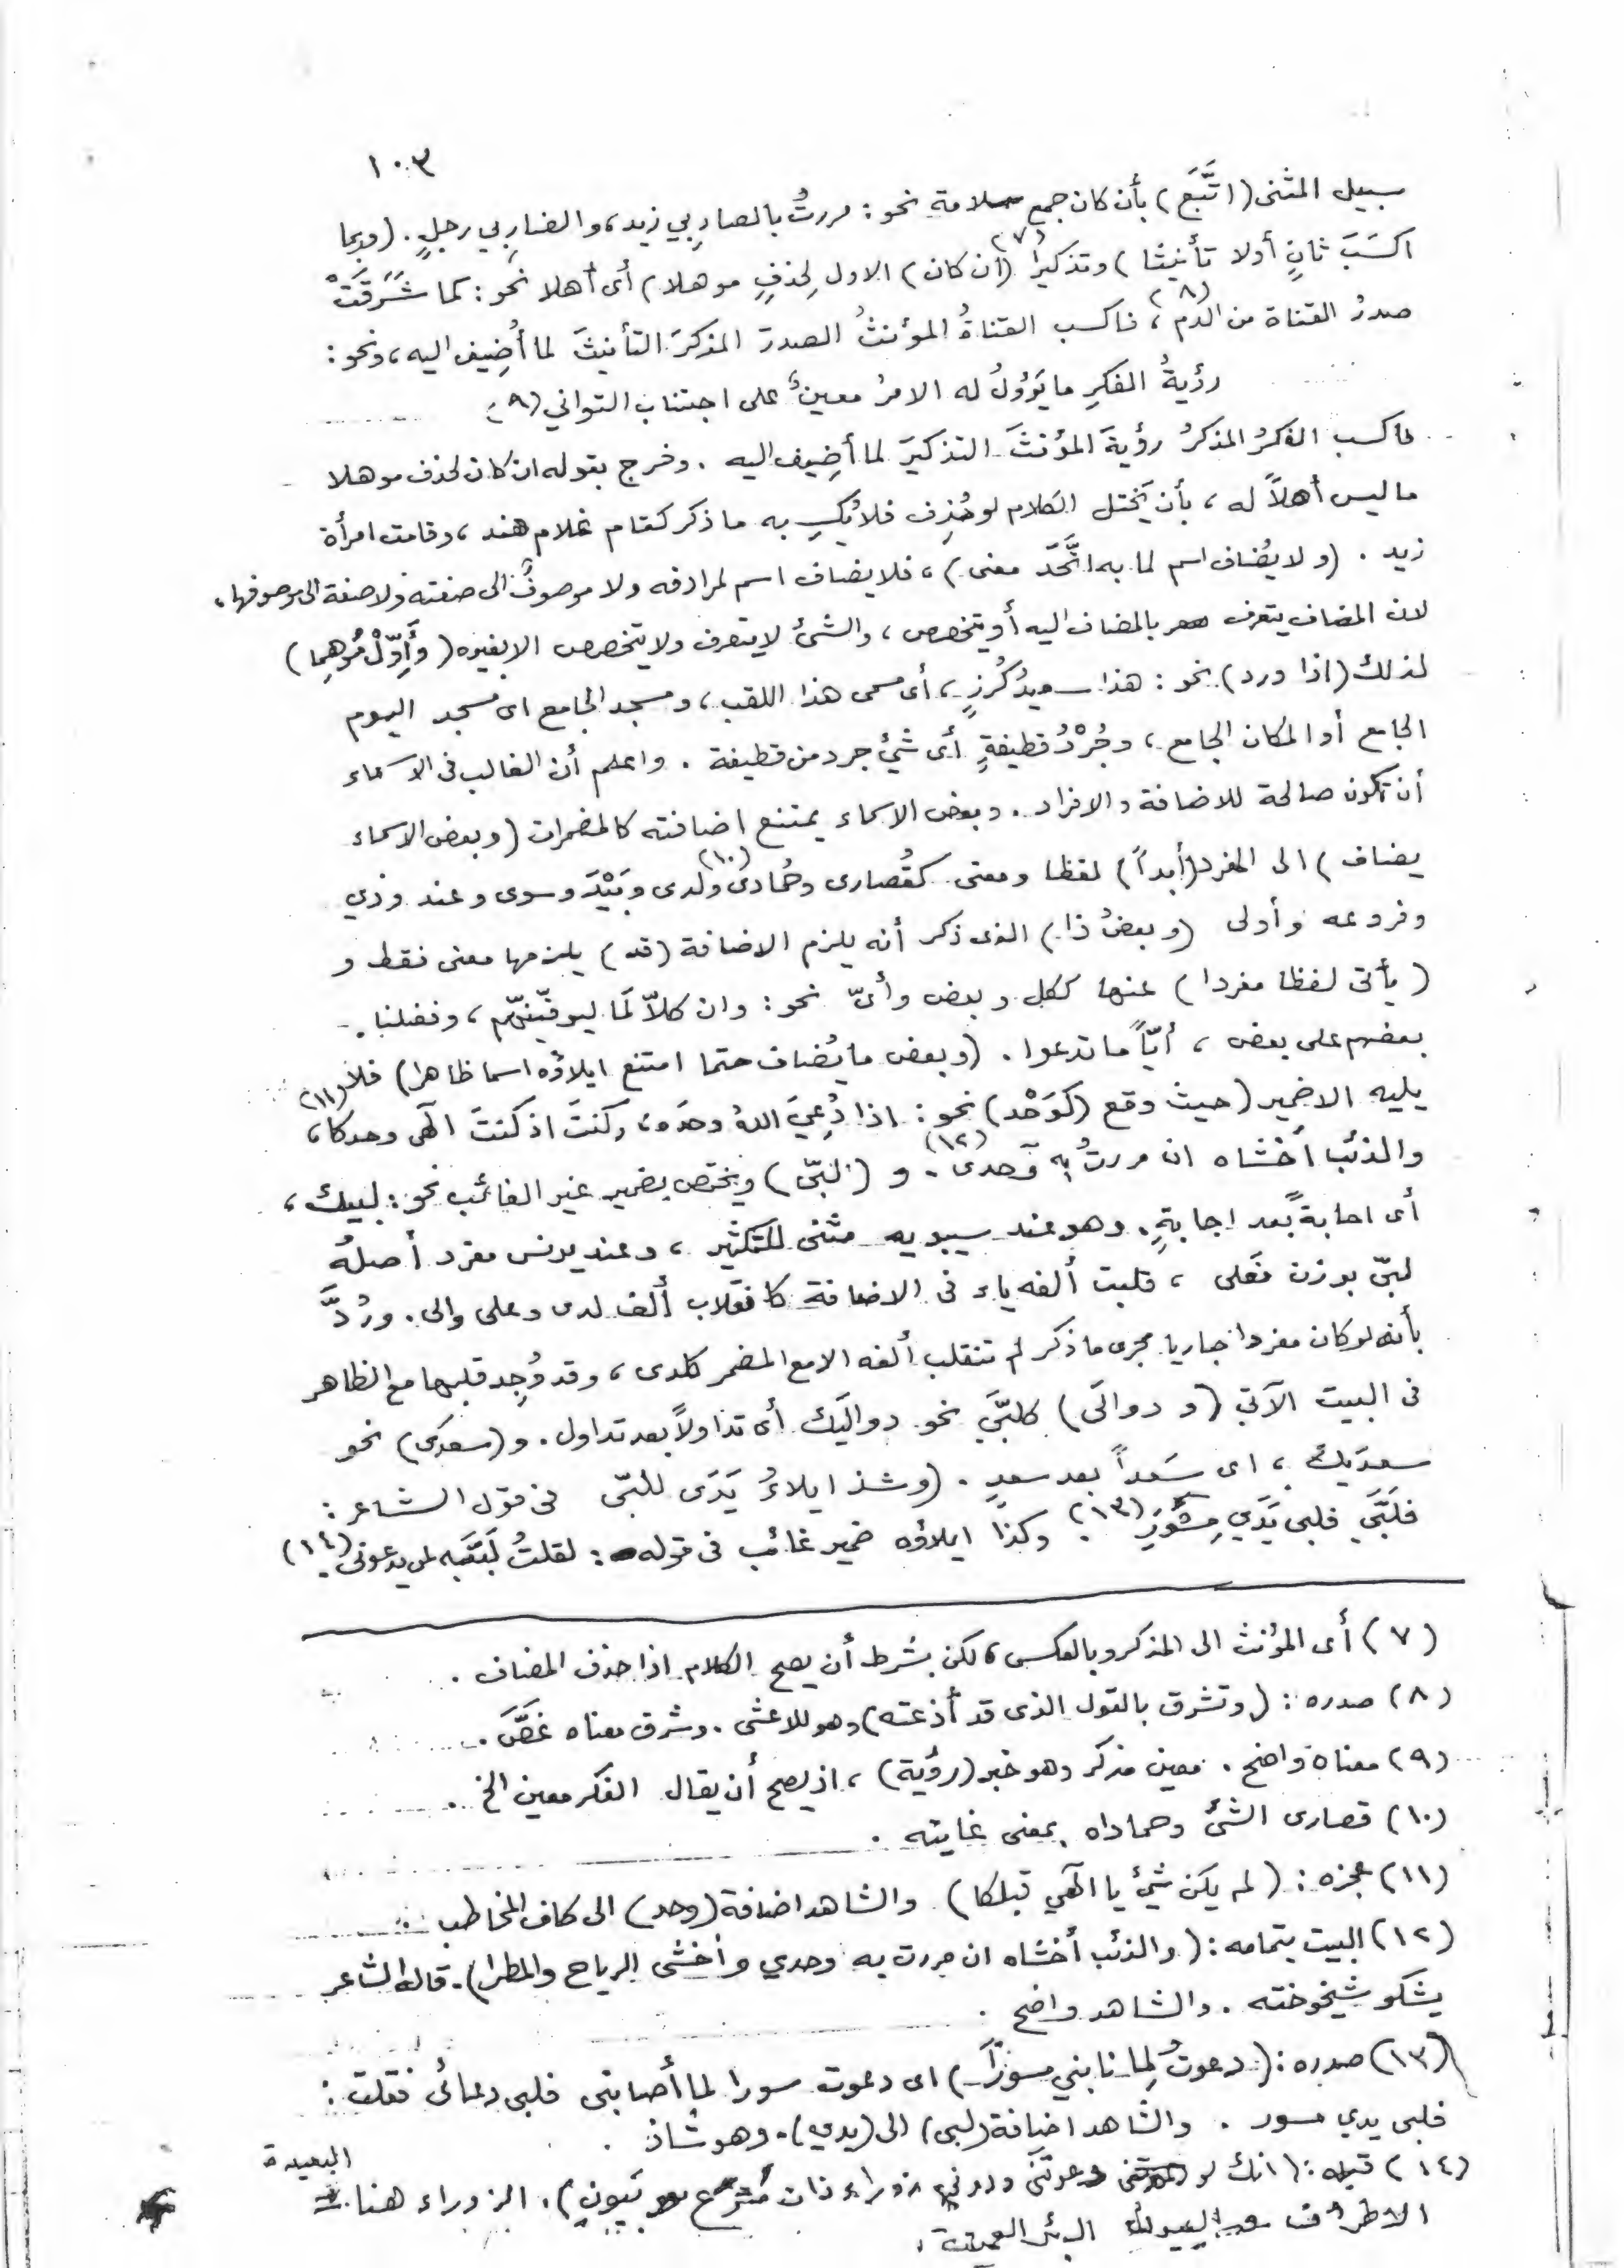 ١٠٣
سبيل المثنى (اتَّبَع) بأن كان جمع سلامة نحو: مررتُ بالضاربي زيد، والضاربي رجلٍ. (وربما
اكسَبَ ثانٍ أولا تأنيثا) وتذكيرا (٧) (ان كان) الاول لِحذفٍ موهلا) أى أهلا نحو: كما شَرَقَتْ
صدرُ القناة من الدم (٨)، فاكسب القناةُ المؤنثُ الصدرَ المذكرَ التأنيثَ لما أُضِيف اليه، ونحو:
رؤيةُ الفكرِ ما يَؤولُ له الامرُ معينٌ على اجتناب التواني (٩)
فاكسب الفكرُ المذكرُ رؤيةَ المؤنثَ التذكيرَ لما أضِيف اليه. وخرج بقوله ان كان لحذف موهلا
ما ليس أهلاً له، بأن يَختل الكلام لو حُذِف فلا يُكسِب به ما ذكر كقام غلام هند، وقامت امرأة
زيد. (ولا يُضاف اسم لما به اتَّحَدَ معنى)، فلا يضاف اسم لمرادفه ولا موصوفٌ الى صفته ولا صفة الى موصوفها،
لان المضاف يتعرف بالمضاف اليه أو يتخصص، والشئ لا يتعرف ولا يتخصص الا بغيره (وأَوِّلْ مُوهِما)
لذلك (اذا ورد) نحو: هذا سعيدُ كُرزٍ، أى مسمى هذا اللقب، ومسجد الجامع اى مسجد اليوم
الجامع أو المكان الجامع، وجُرْدُ قطيفةٍ أى شئٍ جرد من قطيفة. واعلم أن الغالب فى الاسماء
أن تكون صالحة للاضافة والافراد. وبعض الاسماء يمتنع اضافته كالمضمرات (وبعض الاسماء
يضاف) الى المفرد (أبداً) لفظا ومعنى كقُصارى وحُمادى (١٠) ولدى وبَيْدَ وسوى وعند وذي
وفروعه وأولى (وبعضُ ذا) الذى ذكر أنه يلزم الاضافة (قد) يلزمها معنى فقط و
(يأتى لفظا مفردا) عنها ككل وبعض وأىّ نحو: وان كلاّ لَمَا ليوفّينهم، وفضلنا
بعضهم على بعض، أيّاً ما تدعوا. (وبعض ما يُضاف حتما امتنع ايلاؤه اسما ظاهرا) فلا
يليه الا ضمير (حيث وقع (كوَحْد) نحو: اذا دُعِيَ اللهُ وحدَه، وكنتَ اذ كنتَ الهى وحدكا (١١)،
والذئب أخشاه ان مررتُ به وحدى (١٢). و (لبّى) ويختص بضمير غير الغائب نحو: لبيك،
أى اجابةً بعد اجابةٍ. وهو عند سيبويه مثنى للتكثير، وعند يونس مفرد أصلُه
لبّى بوزن فَعلى، قلبت ألفه ياء فى الاضافة كانقلاب ألف لدى وعلى والى. ورُدَّ
بأنه لو كان مفردا جاريا مجرى ما ذكر لم تنقلب ألفه الا مع المضمر كلدى، وقد وُجِد قلبها مع الظاهر
فى البيت الآتي (و دوالَى) كلبَّي نحو دواليَك أى تداولاً بعد تداول. و (سعدَى) نحو
سعدَيك، اى سَعداً بعد سعدٍ. (وشذ ايلاءُ يَدَى للبّى فى قول الشاعر:
فلَبَّي فلبى يَدَي مِسْوَرِ (١٣). وكذا ايلاؤه ضمير غائب فى قوله: لقلتُ لَبَّيه لمن يدعونى (١٤)
(٧) أى المؤنث الى المذكر وبالعكس، لكن بشرط أن يصح الكلام اذا حذف المضاف.
(٨) صدره: (وتشرق بالقول الذى قد أذعته) وهو للاعشى. وشرق معناه غَصَّ.
(٩) معناه واضح. معين مذكر وهو خبر (رؤية)، اذ يصح أن يقال الفكر معين الخ.
(١٠) قصارى الشئ وحماداه بمعنى غايته.
(١١) عجزه: (لم يكن شئ يا الهي قبلكا) والشاهد اضافة (وحد) الى كاف المخاطب.
(١٢) البيت بتمامه: (والذئب أخشاه ان مررت به وحدي وأخشى الرياح والمطرا). قاله الشاعر
يشكو شيخوخته. والشاهد واضح.
(١٣) صدره: (دعوتُ لِما نابني مسوراً) اى دعوت مسورا لما أصابنى فلبى دعائى فقلت:
فلبى يدي مسور. والشاهد اضافة (لبى) الى (يدي). وهو شاذ.
(١٤) قبله: (انك لو دعوتَنى ودونى زوراء ذات مُترع بيونِ). الزوراء هنا البعيدة
الاطراف البئر العميقة.